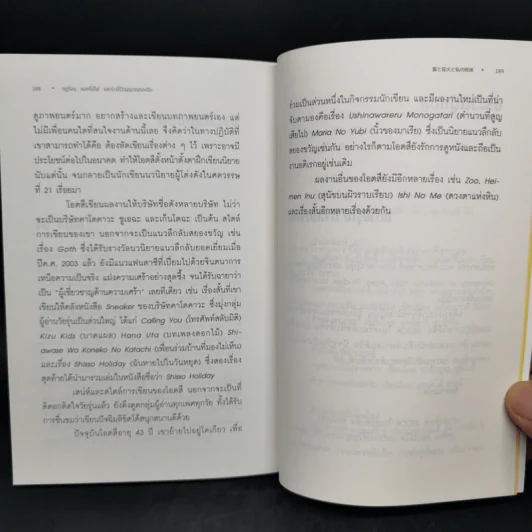 188 • ฤดูร้อน ดอกไม้ไฟ และร่างไร้วิญญาณของฉัน
ดูภาพยนตร์มาก อยากสร้างและเขียนบทภาพยนตร์เอง แต่
ไม่มีเพื่อนคนใดที่สนใจงานด้านนี้เลย จึงคิดว่าในทางปฏิบัติที่
เขาสามารถทำได้คือ ต้องหัดเขียนเรื่องต่าง ๆ ไว้ เพราะอาจมี
ประโยชน์ต่อไปในอนาคต ทำให้โอตสึตั้งหน้าตั้งตาฝึกเขียนนิยาย
นับแต่นั้น จนกลายเป็นนักเขียนนวนิยายผู้โด่งดังในศตวรรษ
ที่ 21 เรื่อยมา
โอตสึเขียนผลงานให้บริษัทชื่อดังหลายบริษัท ไม่ว่า
จะเป็นบริษัทคาโดคาวะ ชูเอฉะ และเก็นโตฉะ เป็นต้น สไตล์
การเขียนของเขา นอกจากจะเป็นแนวลึกลับสยองขวัญ เช่น
เรื่อง Goth ซึ่งได้รับรางวัลนวนิยายลึกลับยอดเยี่ยมเมื่อ
ปีค.ศ. 2003 แล้ว ยังมีแนวแฟนตาซีที่เปี่ยมไปด้วยจินตนาการ
เหนือความเป็นจริง แฝงความเศร้าอย่างสุดซึ้ง จนได้รับฉายาว่า
เป็น "ผู้เชี่ยวชาญด้านความเศร้า" เลยทีเดียว เช่น เรื่องสั้นที่เขา
เขียนให้คลังหนังสือ Sneaker ของบริษัทคาโดคาวะ ซึ่งมุ่งกลุ่ม
ผู้อ่านวัยรุ่นเป็นส่วนใหญ่ ได้แก่ Calling You (โทรศัพท์สลับมิติ)
Kizu Kids (บาดแผล) Hana Uta (บทเพลงดอกไม้) Shi-
awase Wa Koneko No Katachi (เพื่อนร่วมบ้านที่มองไม่เห็น)
และเรื่อง Shisso Holiday (ฉันหายไปในวันหยุด) ซึ่งสองเรื่อง
สุดท้ายได้นำมารวมเล่มในหนังสือชื่อว่า Shisso Holiday
เสน่ห์และสไตล์การเขียนของโอตสึ นอกจากจะเป็นที่
ติดอกติดใจวัยรุ่นแล้ว ยังดึงดูดกลุ่มผู้อ่านทุกเพศทุกวัย ทั้งได้รับ
การชื่นชมว่าเขียนปัจฉิมลิขิตได้สนุกสนานดีด้วย
ปัจจุบันโอตสึอายุ 43 ปี เขาย้ายไปอยู่โตเกียว เพื่อ
夏と花火と私の死体 • 189
ร่วมเป็นส่วนหนึ่งในกิจกรรมนักเขียน และมีผลงานใหม่เป็นที่น่า
จับตามองคือเรื่อง Ushinawareru Monogatari (ตำนานที่สูญ
เสียไป) Maria No Yubi (นิ้วของมาเรีย) ซึ่งเป็นนิยายแนวลึกลับ
สยองขวัญเช่นกัน อย่างไรก็ตามโอตสึยังรักการดูหนังและถือเป็น
งานอดิเรกอยู่เช่นเดิม
ผลงานอื่นของโอตสึยังมีอีกหลายเรื่อง เช่น Zoo, Hei-
men Inu (สุนัขบนผิวราบเรียบ) Ishi No Me (ดวงตาแห่งหิน)
และเรื่องสั้นอีกหลายเรื่องด้วยกัน